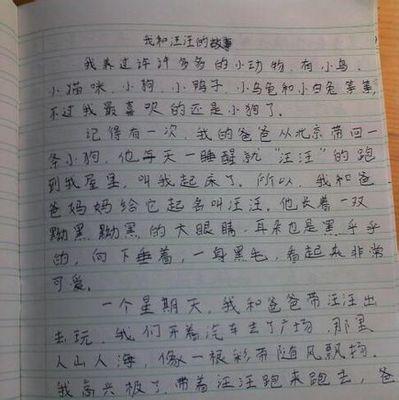 我和汪汪的故事
我养过许许多多的小动物,有小鸟、
小猫咪、小狗、小鸭子、小乌龟和小白兔等等,
不过我最喜欢的还是小狗了。
记得有一次,我的爸爸从北京带回一
条小狗,他每天一睡醒就“汪汪”的跑
到我屋里,叫我起床了。所以,我和爸
爸妈妈给它起名叫汪汪。他长着一双
黝黑黝黑的大眼睛,耳朵也是黑乎乎
的,向下垂着,一身黑毛,看起来非常
可爱。
一个星期天,我和爸爸带汪汪出
去玩,我们开着汽车去了广场,那里
人山人海,像一根彩带随风飘扬。
我高兴极了,带着汪汪跑来跑去,爸